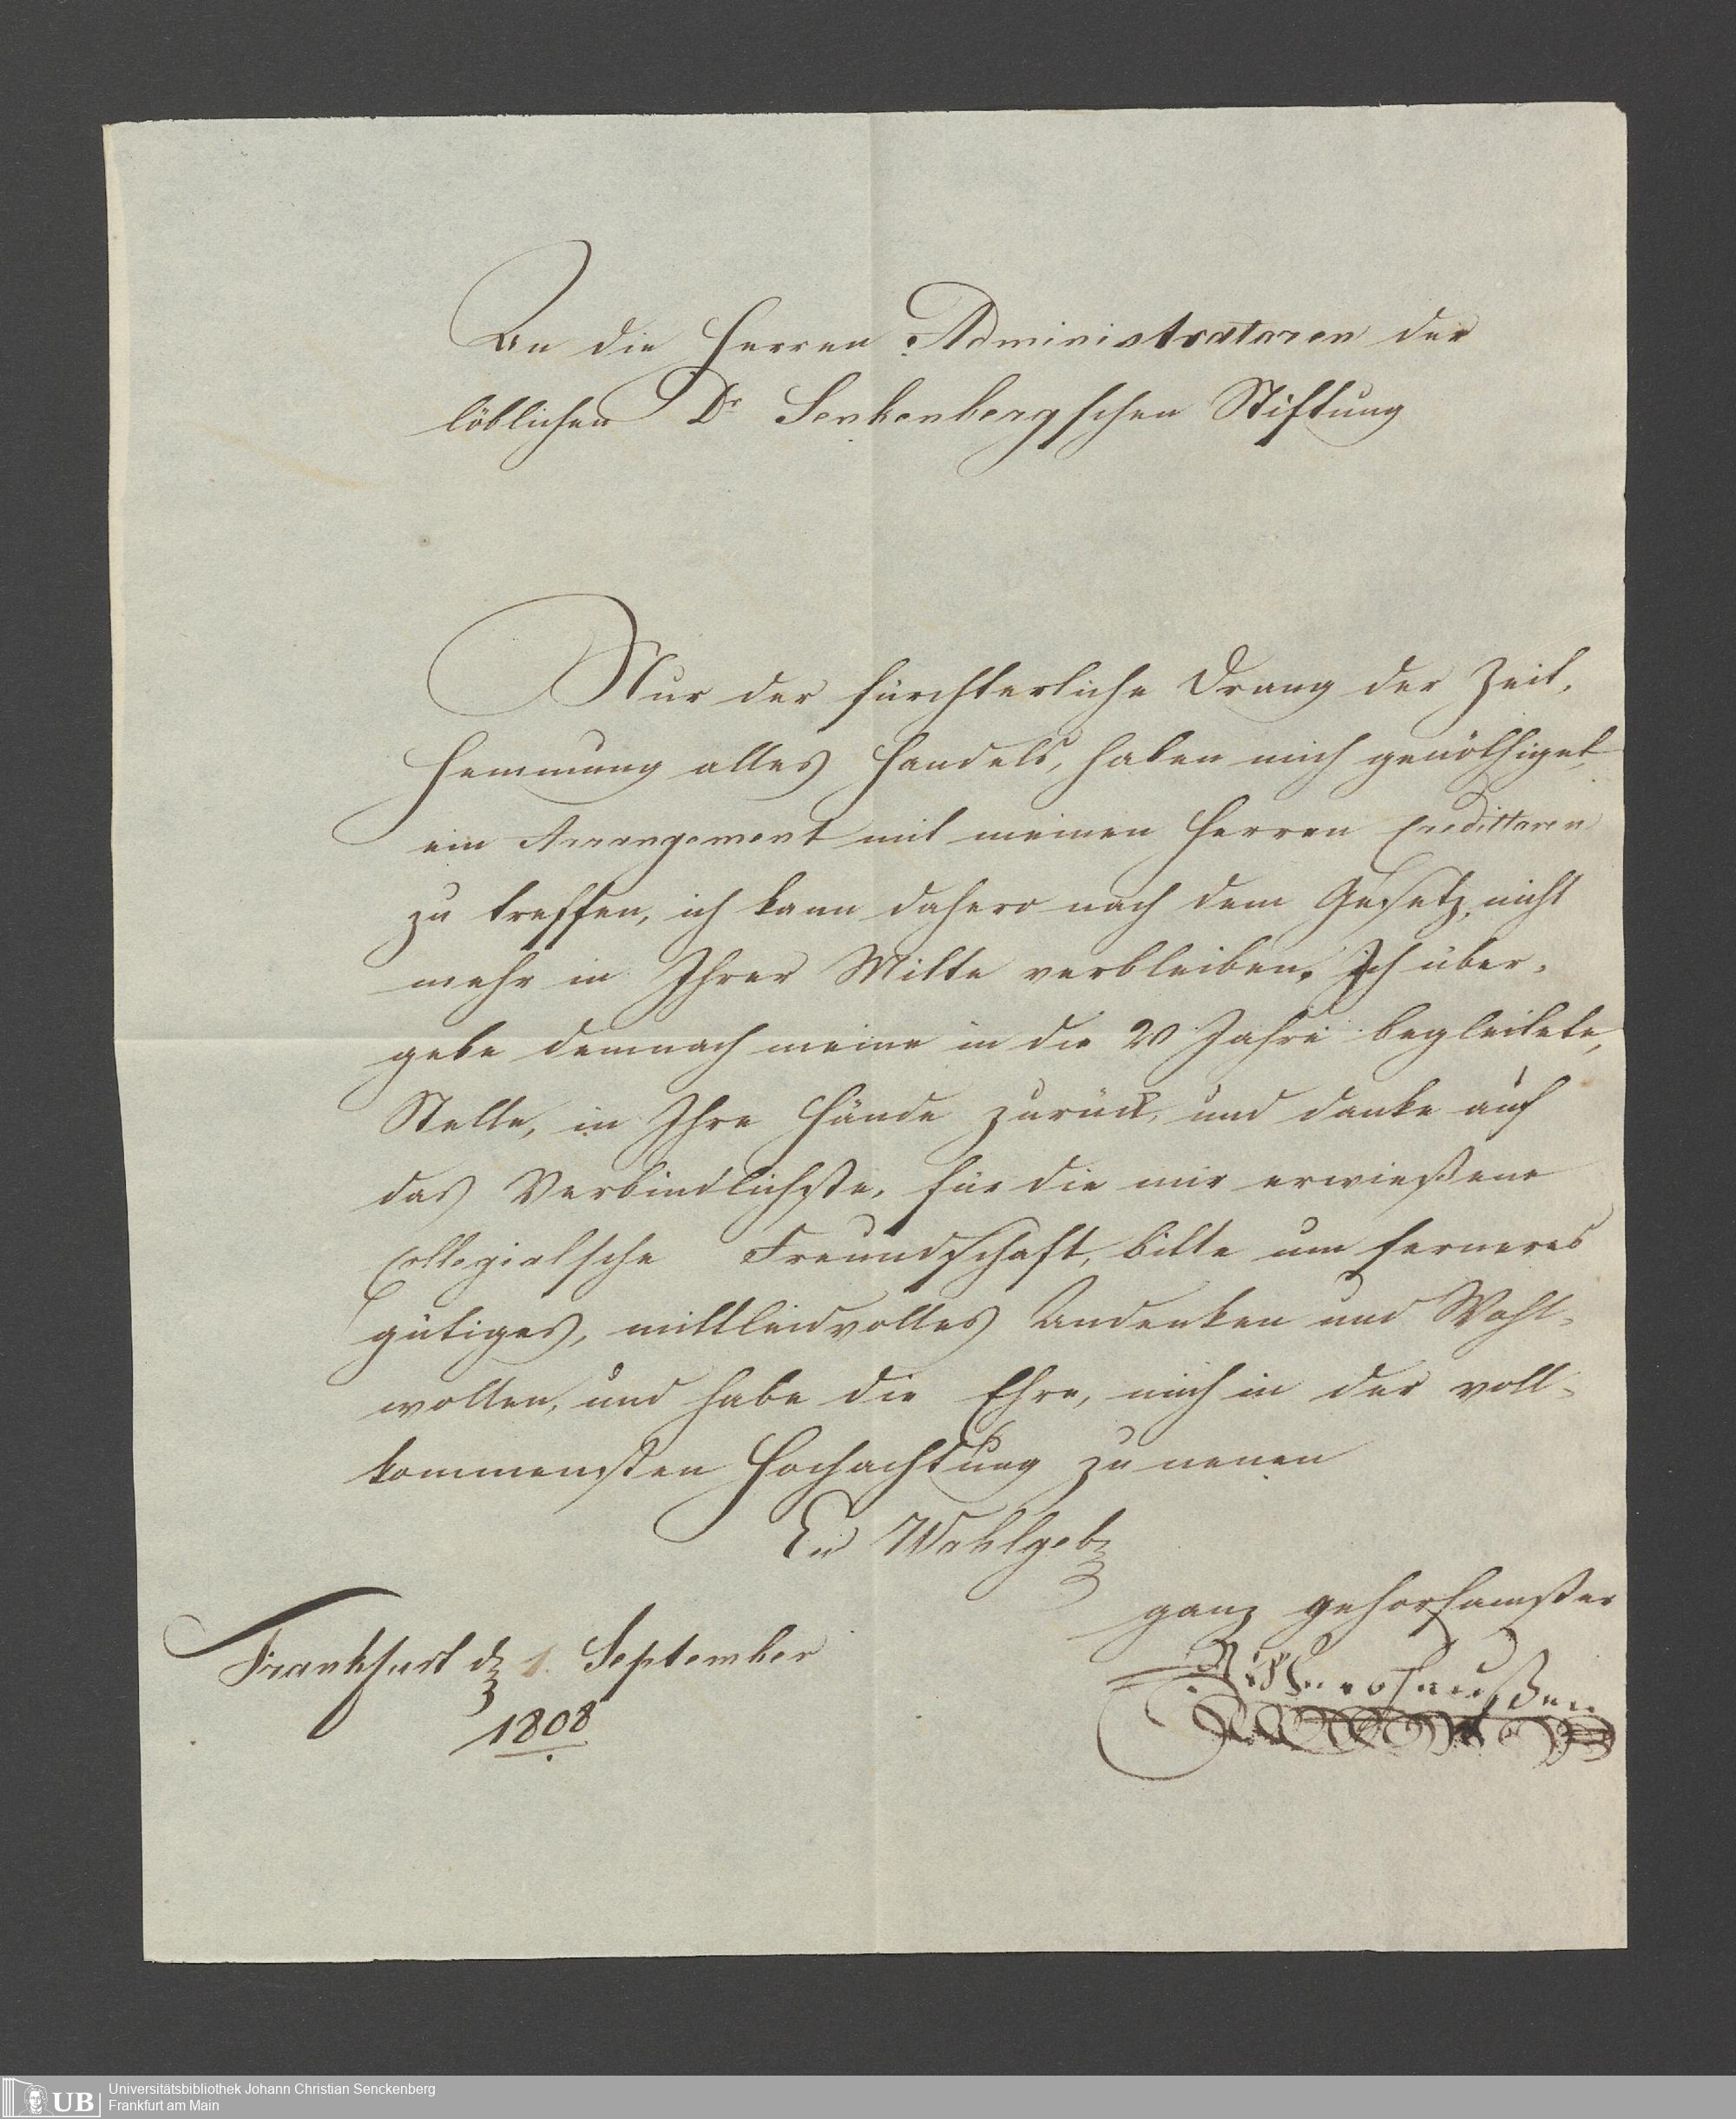 An die Herren Administratoren der
löblichen Dr Senkenbergschen Stiftung
Nur der fürchterliche Drang der Zeit,
Hemmung alles Handels, haben mich genöthiget
ein Arrangement mit meinen Herren Credittoren
zu treffen, ich kann dahero nach dem Gesetz, nicht
mehr in Ihrer Mitte verbleiben. Ich über-
gebe demnach meine in die 20 Jahre begleitete,
Stelle, in Ihre Hände zurück, und danke auf
das Verbindlichste, für die mir erwießene
Collegialsche Freundschaft, bitte um ferneres
gütiges, mittleidvolles Andenken und Wohl-
wollen, und habe die Ehre, mich in der voll-
kommensten Hochachtung zu nenen
Eu Wohlgeb
ganz gehorsamster
Frankfurt d 1. September
1808
Universitätsbibliothek Johann Christian Senckenberg
Frankfurt am Main
UB